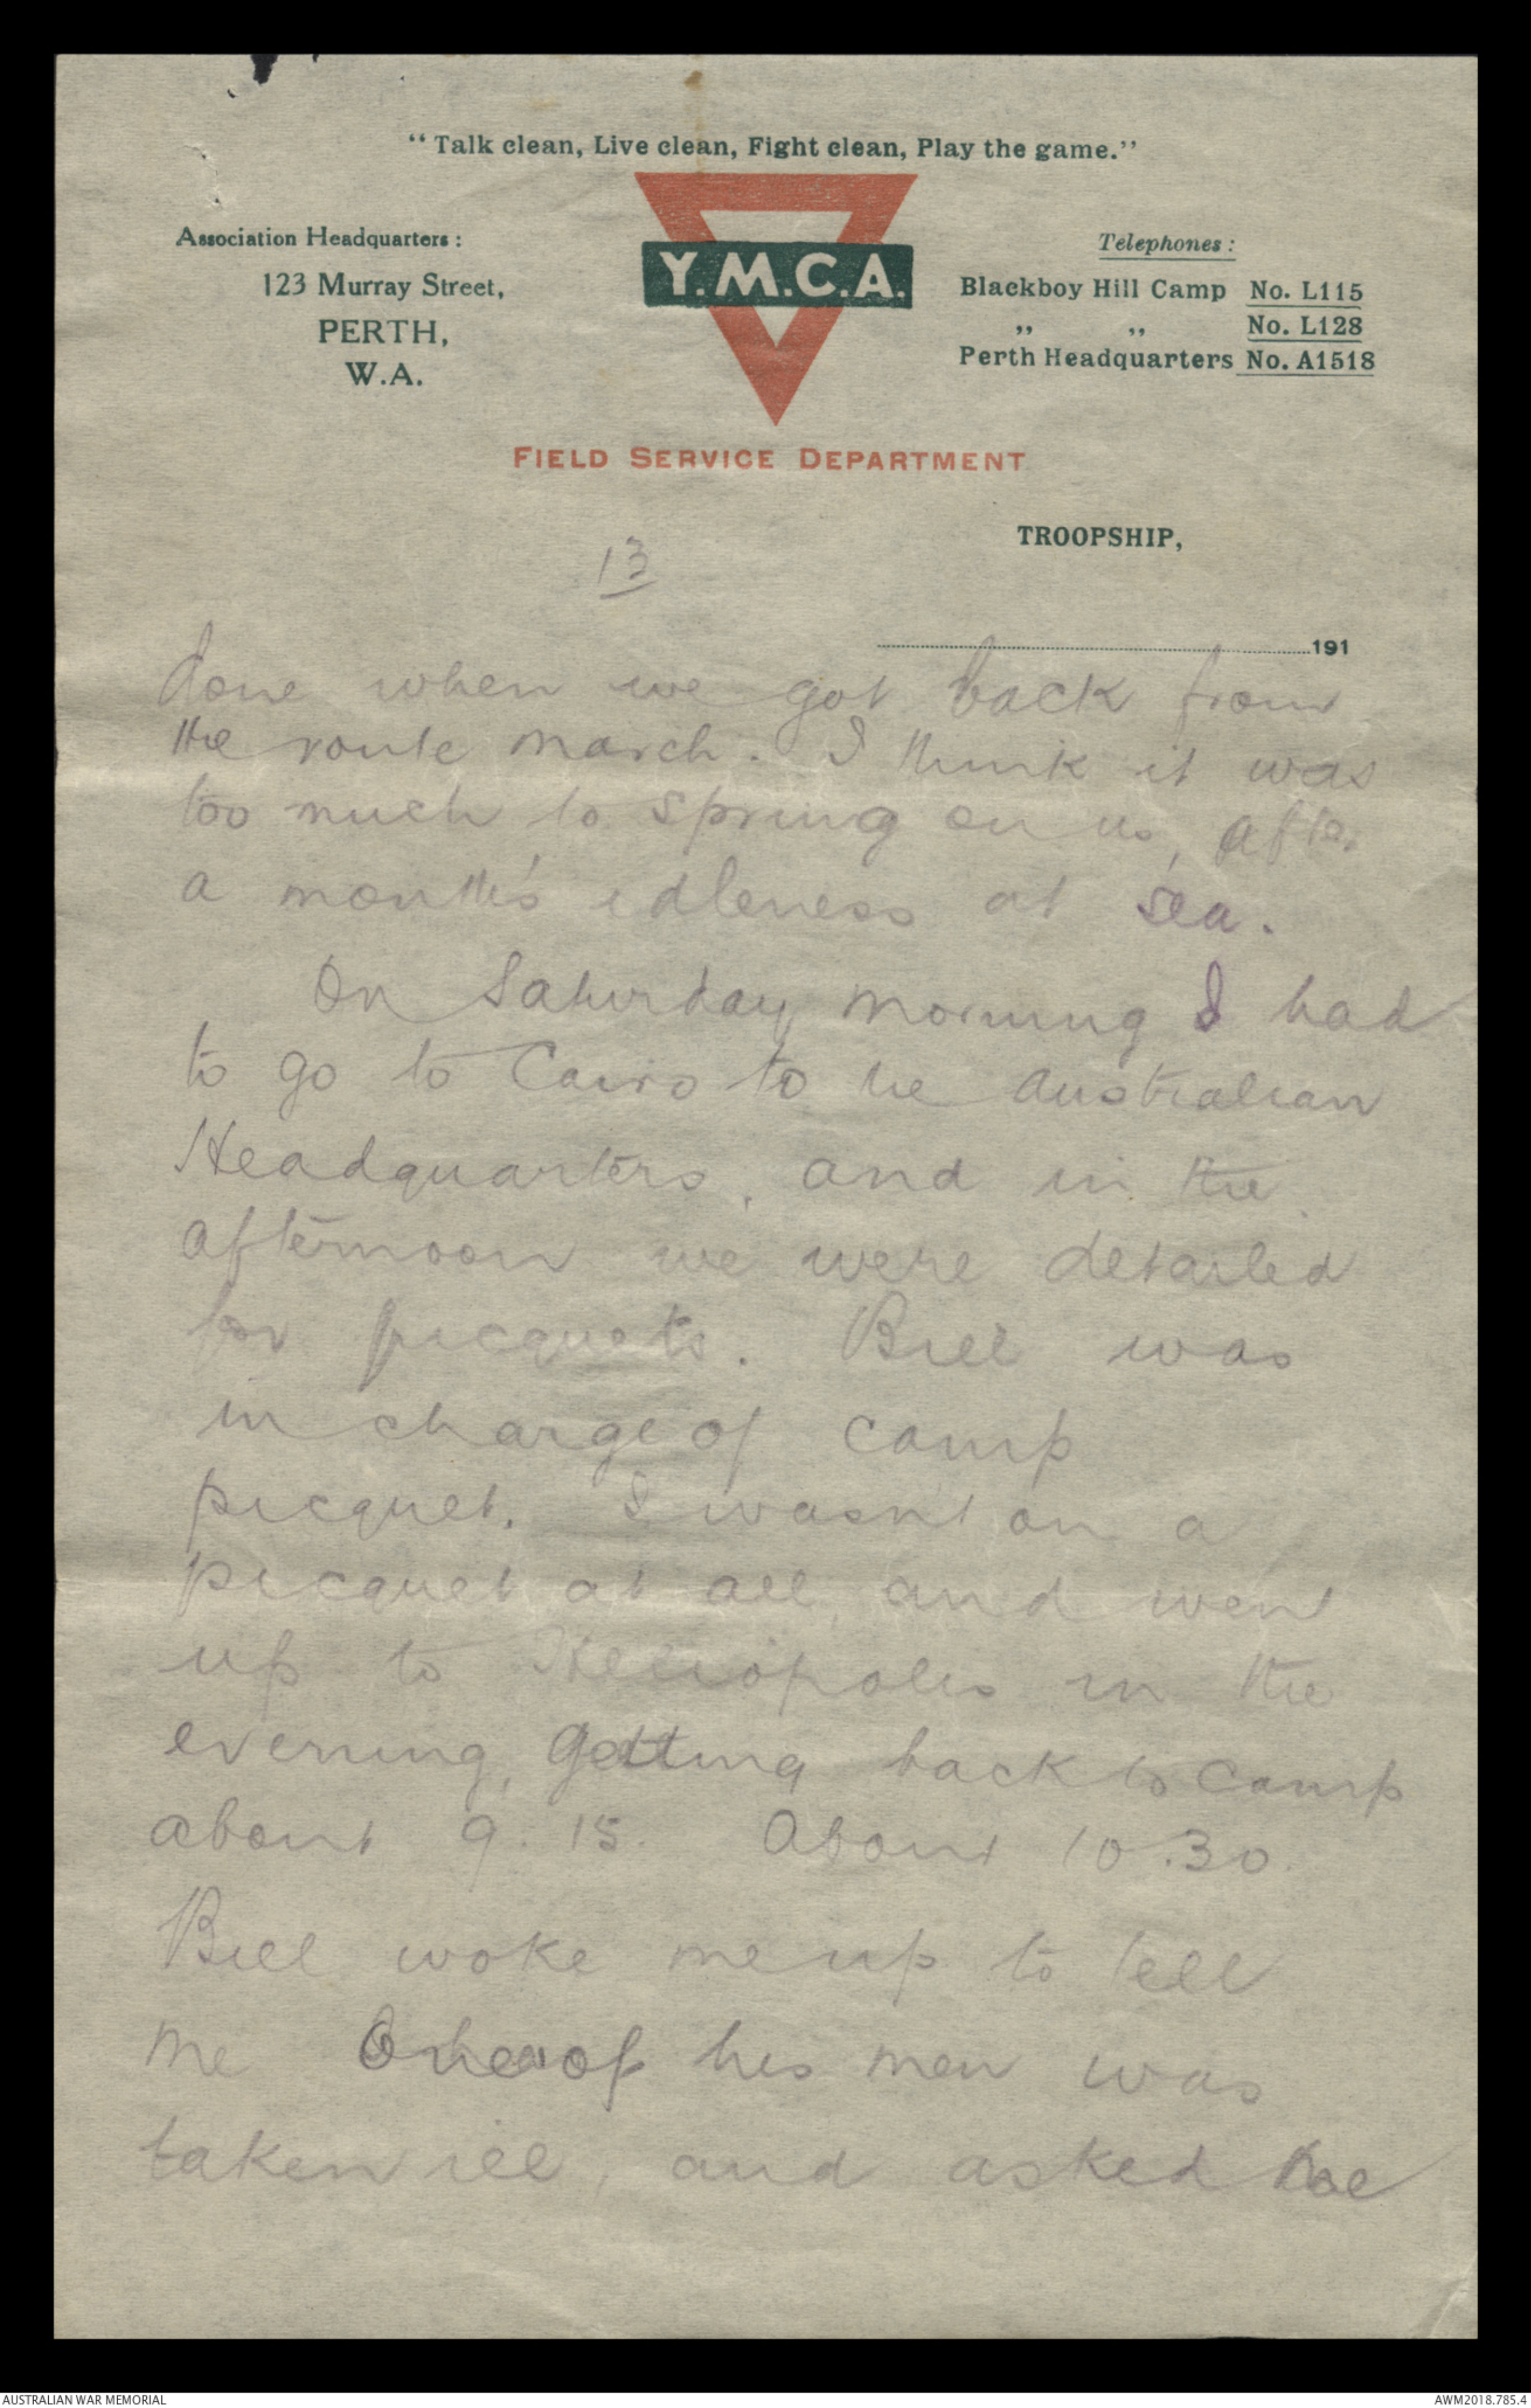 “Talk clean, Live clean, Fight clean, Play the game.”
Association Headquarters :
123 Murray Street,
PERTH,
W.A.
Y.M.C.A.
Telephones :
Blackboy Hill Camp No. L115
,, ,, No. L128
Perth Headquarters No. A1518
FIELD SERVICE DEPARTMENT
TROOPSHIP,
13
191
done when we got back from
the route march. I think it was
too much to spring on us, after
a month's idleness at sea.
On Saturday morning I had
to go to Cairo to he Australian
Headquarters, and in the
afternoon we were detailed
for picquets. Bill was
in charge of camp
picquet. I wasn't on a
picquet at all, and went
up to Heliopolis in the
evening, getting back to camp
about 9.15. About 10.30.
Bill woke me up to tell
me One of his men was
taken ill, and asked
AUSTRALIAN WAR MEMORIAL
AWM2018.785.4